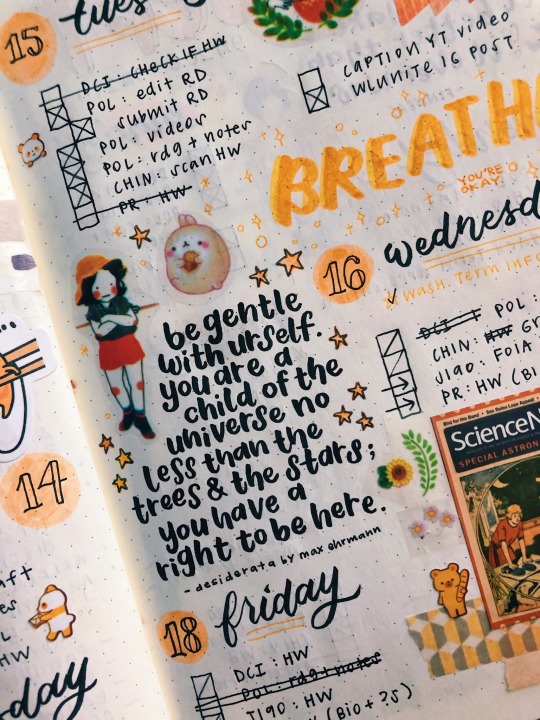 15
DCI: CHECK IF HW
POL: edit RD
submit RD
POL: videos
POL: rdg + notes
CHIN: scan HW
PR: HW
CAPTION YT video
WLUNITE IG POST
BREATH
YOU'RE
OKAY.
16
wednesd
WASH. Term INFO
DCI: F POL:
CHIN: HW
J190: FOIA
PR: HW (BI
be gentle
with urself.
you are a
child of the
universe no
less than the
trees & the stars;
you have a
right to be here.
- desiderata by max ehrmann
ScienceN
SPECIAL ASTRON
14
day
18 friday
DCI: HW
POL: rdg + notes
J190: HW
(Bio + ?s)